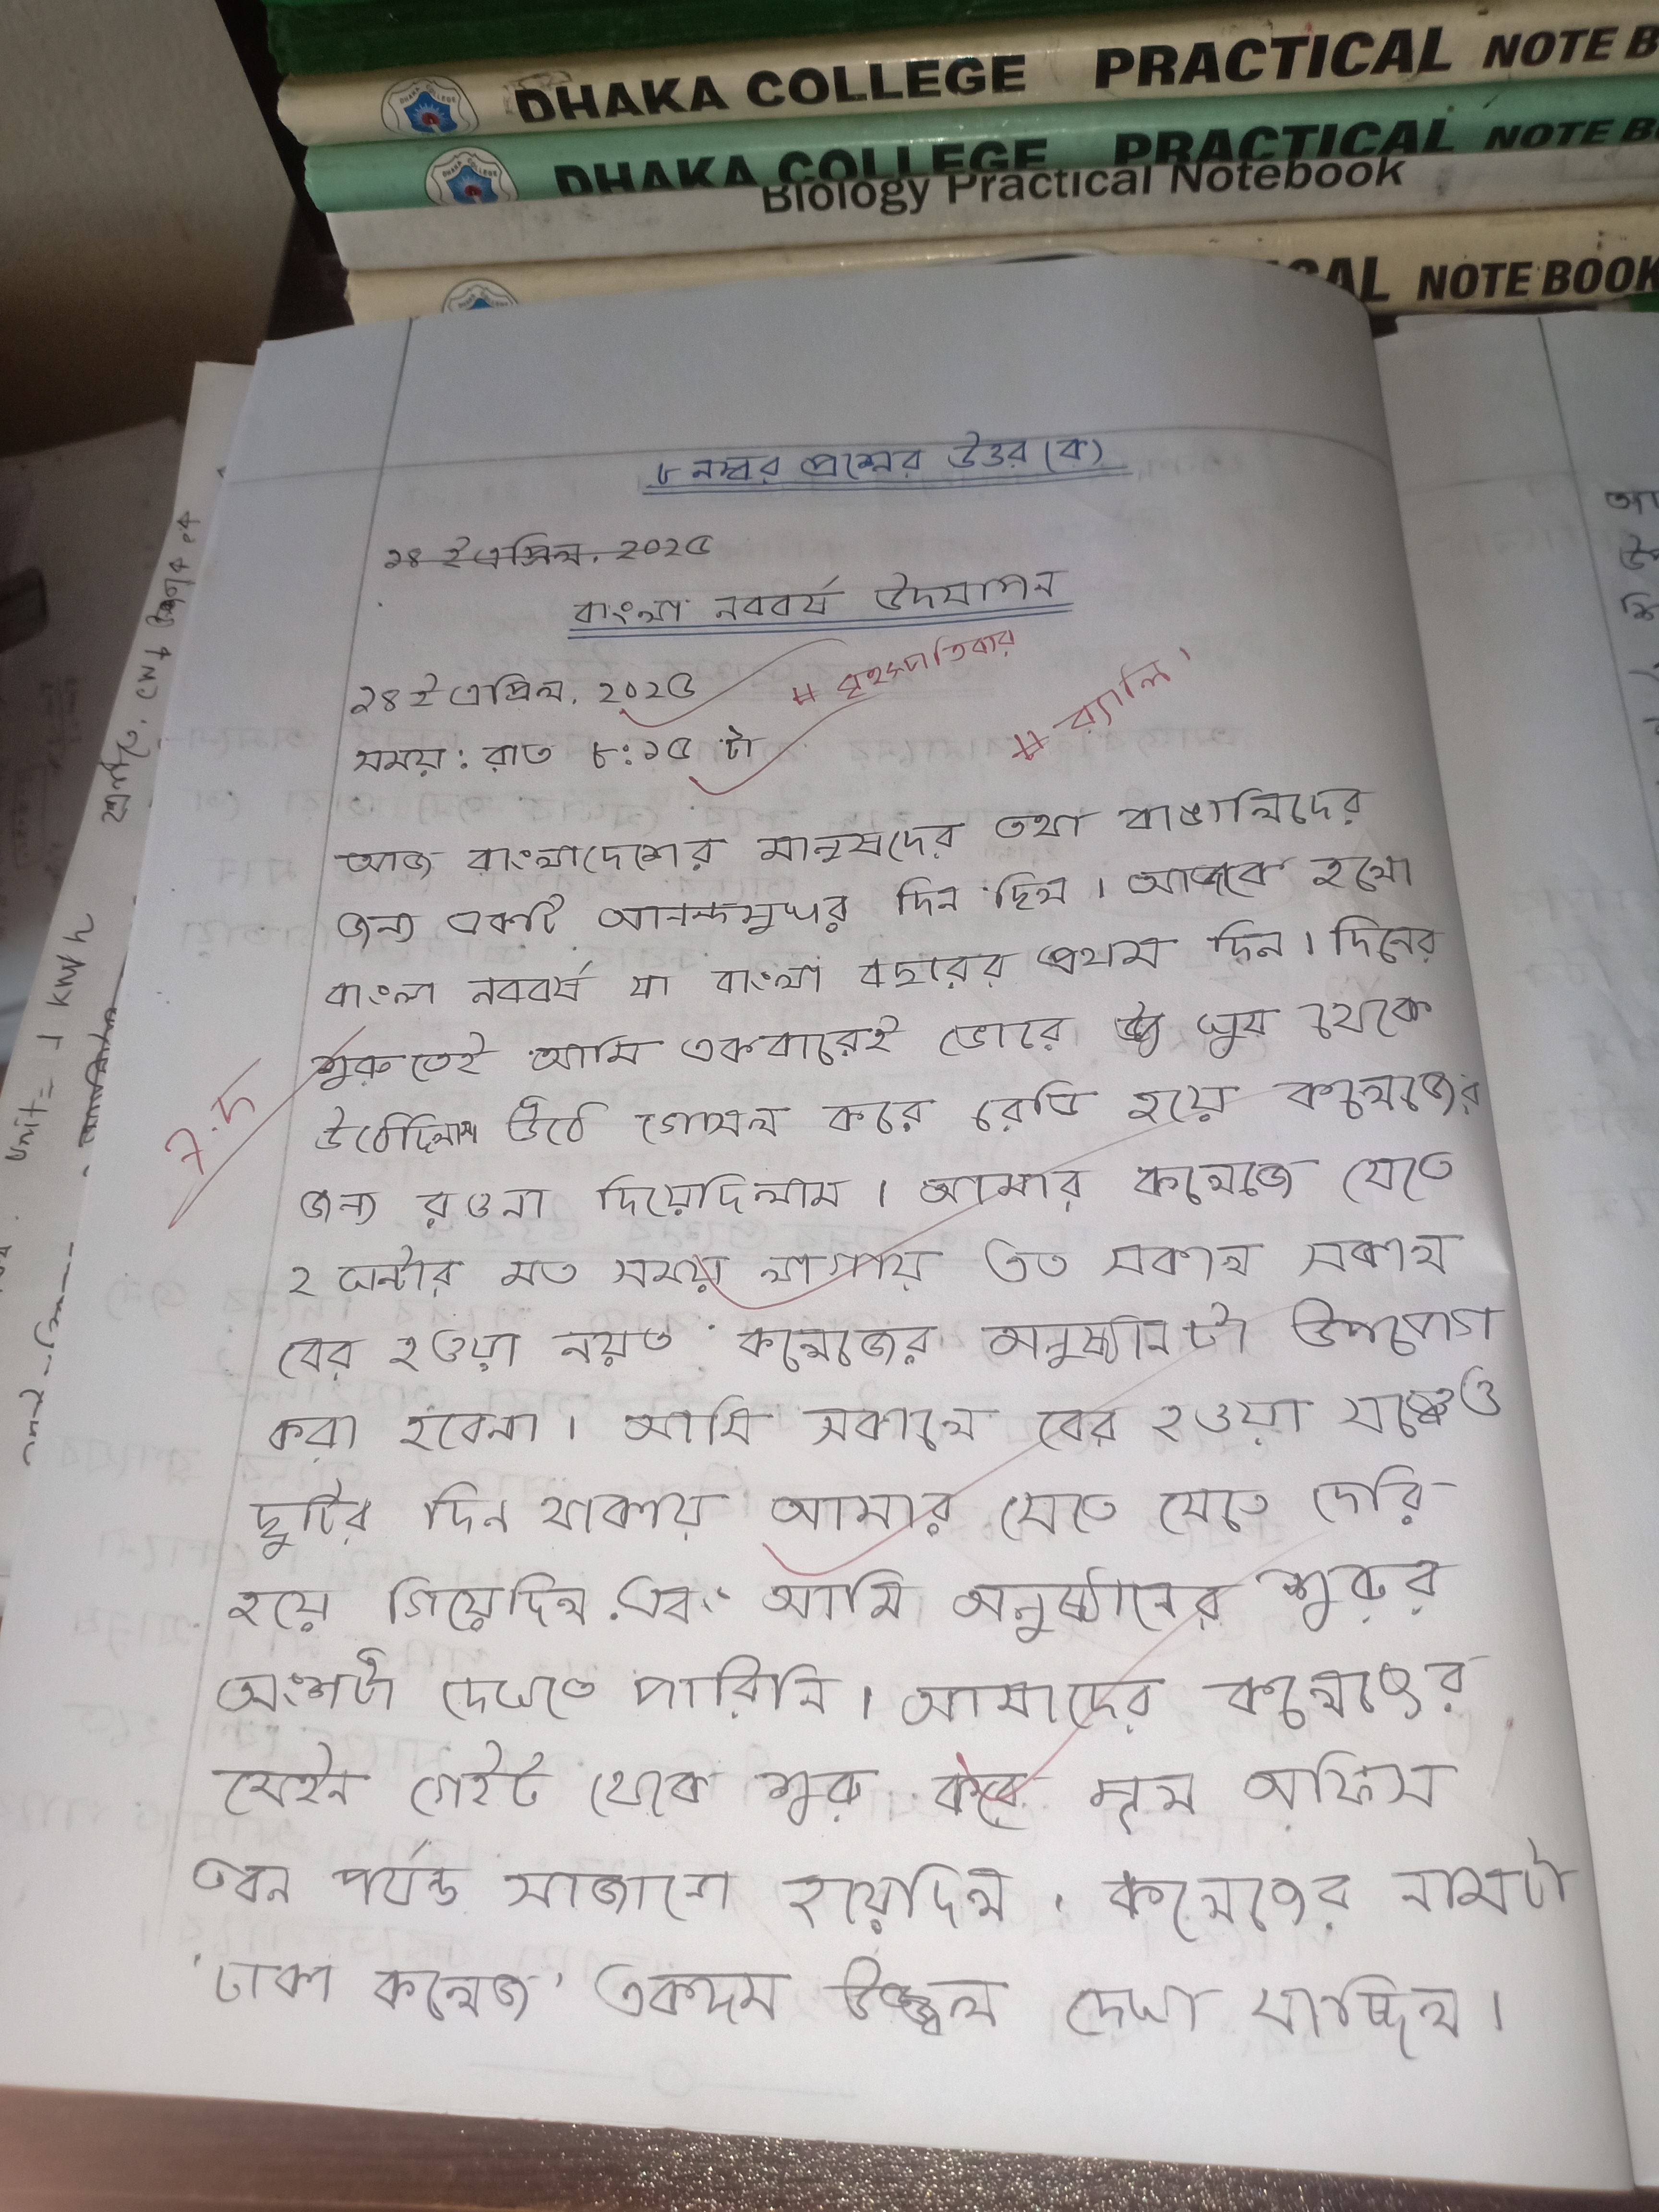 DHAKA COLLEGE PRACTICAL NOTE B
DHAKA COLLEGE PRACTICAL NOTE B
Biology Practical Notebook
CAL NOTE BOOK
৮ নম্বর প্রশ্নের উত্তর (ক)
১৪ ই এপ্রিল, ২০২৫
বাংলা নববর্ষ উদযাপন
১৪ ই এপ্রিল, ২০২৫
# বৃহস্পতিবার
# র‍্যালি।
সময়: রাত ৮:১৫ টা
আজ বাংলাদেশের মানুষদের তথা বাঙালিদের
জন্য একটি আনন্দমুখর দিন ছিল। আজকে হলো
বাংলা নববর্ষ যা বাংলা বছরের প্রথম দিন। দিনের
শুরুতেই আমি একবারেই ভোরে ঘুম থেকে
7.5
উঠেছিলাম উঠে গোসল করে রেডি হয়ে কলেজের
জন্য রওনা দিয়েছিলাম। আমার কলেজে যেতে
২ ঘন্টার মত সময় লাগায় তত সকাল সকাল
বের হওয়া নয়ত কলেজের অনুষ্ঠানটা উপভোগ
করা হবেনা। আমি সকালে বের হওয়া সত্ত্বেও
ছুটির দিন থাকায় আমার যেতে যেতে দেরি
হয়ে গিয়েছিল এবং আমি অনুষ্ঠানের শুরুর
অংশটা দেখতে পারিনি। আমাদের কলেজের
মেইন গেইট থেকে শুরু করে মূল অফিস
ভবন পর্যন্ত সাজানো হয়েছিল। কলেজের নামটা
'ঢাকা কলেজ' একদম উজ্জ্বল দেখা যাচ্ছিল।
Unit = 1 kW h